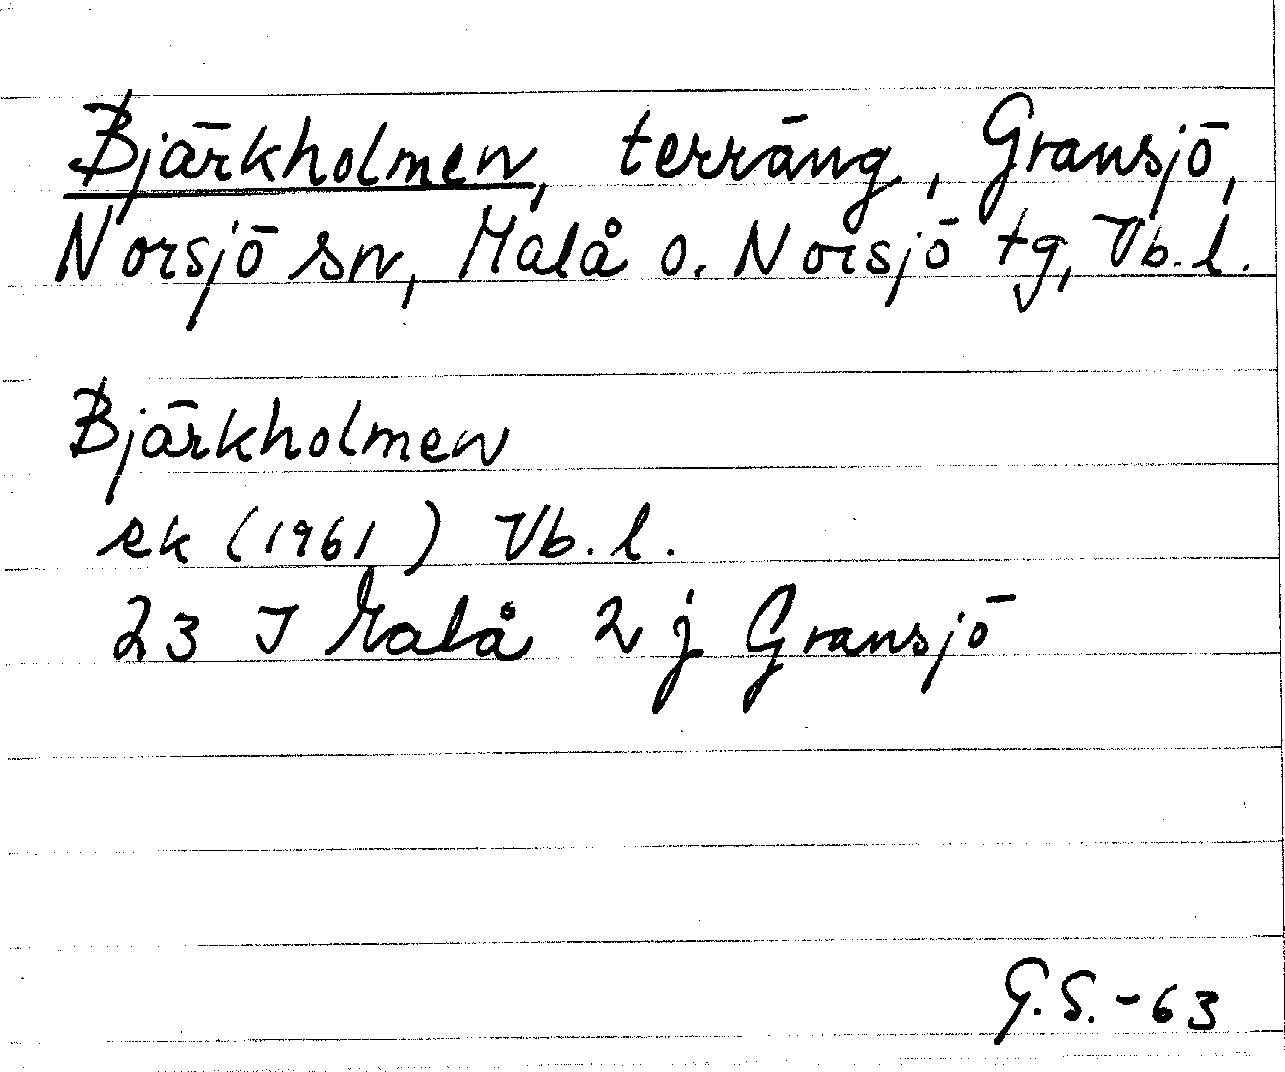 Bjärkholmen, terräng, Gransjö,
Norsjö sn, Malå o. Norsjö tg, Vb. l.
Bjärkholmen
ek (1961) Vb. l.
23 J Malå 2 j Gransjö
G.S. -63